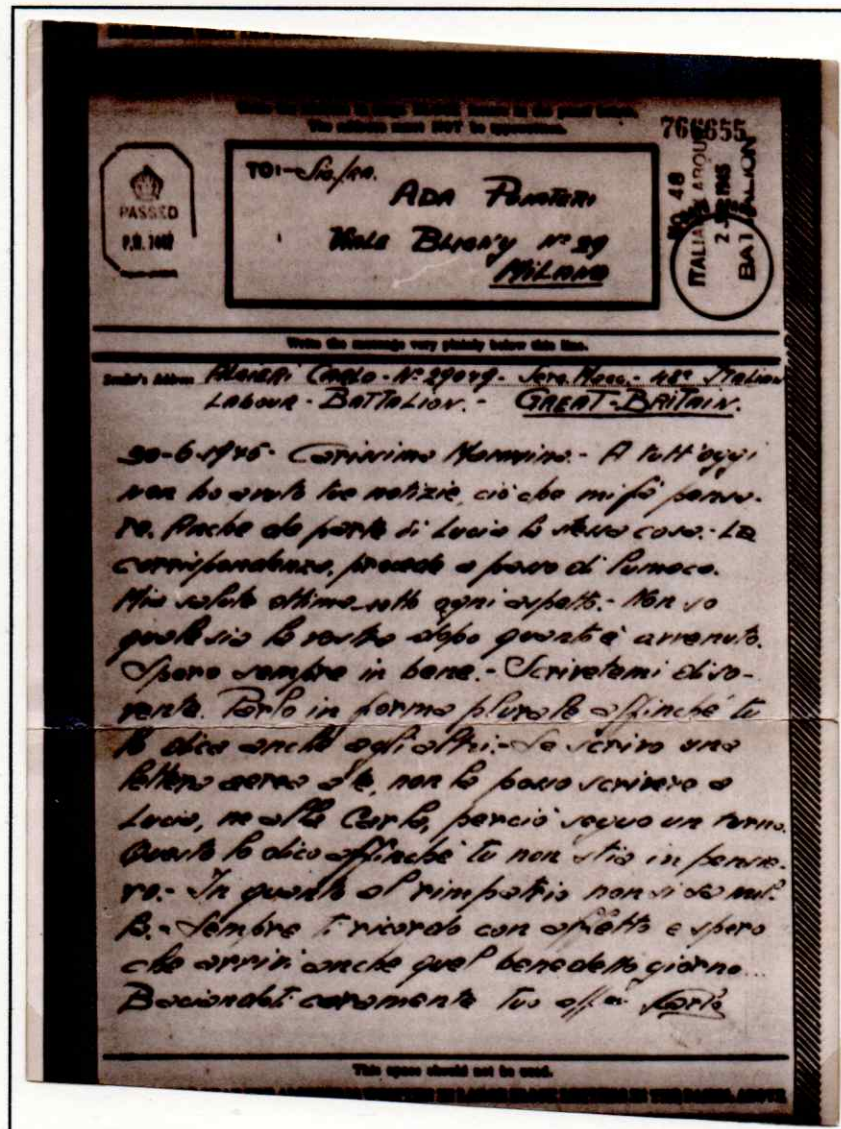 The address must NOT be typewritten.
766655
PASSED
TO:- Sig/ra.
ADA
VIALE BLIGNY Nº 29
MILANO
Nº 48
ITALIAN LABOUR
BATTALION
Write the message very plainly below this line.
Sender's Address CARLO - Nº 29079 - 48º Italian
LABOUR - BATTALION. - GREAT-BRITAIN.
Carissima Mammina.- A tutt'oggi
non ho avuto tue notizie, ciò che mi fà pensa-
re. Anche da parte di Lucia la stessa cosa.- La
corrispondenza, procede a passo di lumaca.
Mia salute ottima sotto ogni aspetto.- Non so
quale sia la vostra dopo quanto è avvenuto.
Spero sempre in bene.- Scrivetemi di so-
vente. Parlo in forma plurale affinché tu
lo dica anche agli altri.- Se scrivo una
lettera aerea a te, non la posso scrivere a
Lucia, ne alla Carla, perciò seguo un turno.
Questo lo dico affinché tu non stia in pensie-
ro.- In quanto al rimpatrio non si sa nul-
la.- Sempre ti ricordo con affetto e spero
che arrivi anche quel benedetto giorno...
Baciandoti caramente tuo aff.mo Carlo
This space should not be used.